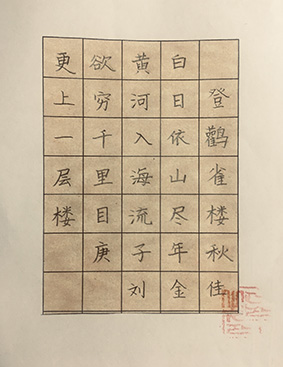 登鸛雀楼
白日依山尽
黄河入海流
欲穷千里目
更上一层楼
庚子年秋
刘金佳